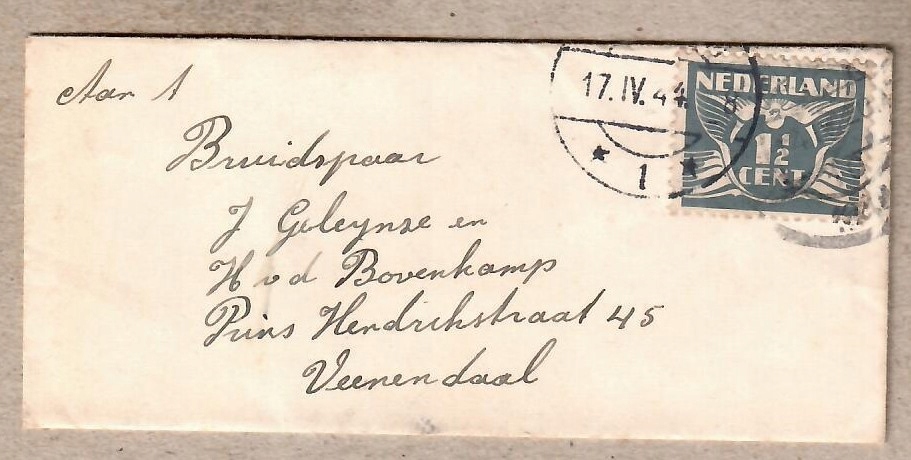 Aan 't
Bruidspaar
J Geleynse en
H v d Bovenkamp
Prins Hendrikstraat 45
Veenendaal
17.IV.44
1
NEDERLAND
1½
CENT